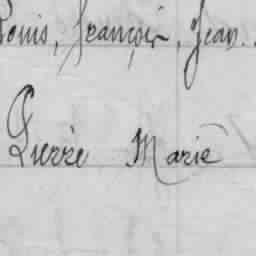 Denis, François, Jean
Pierre Marie